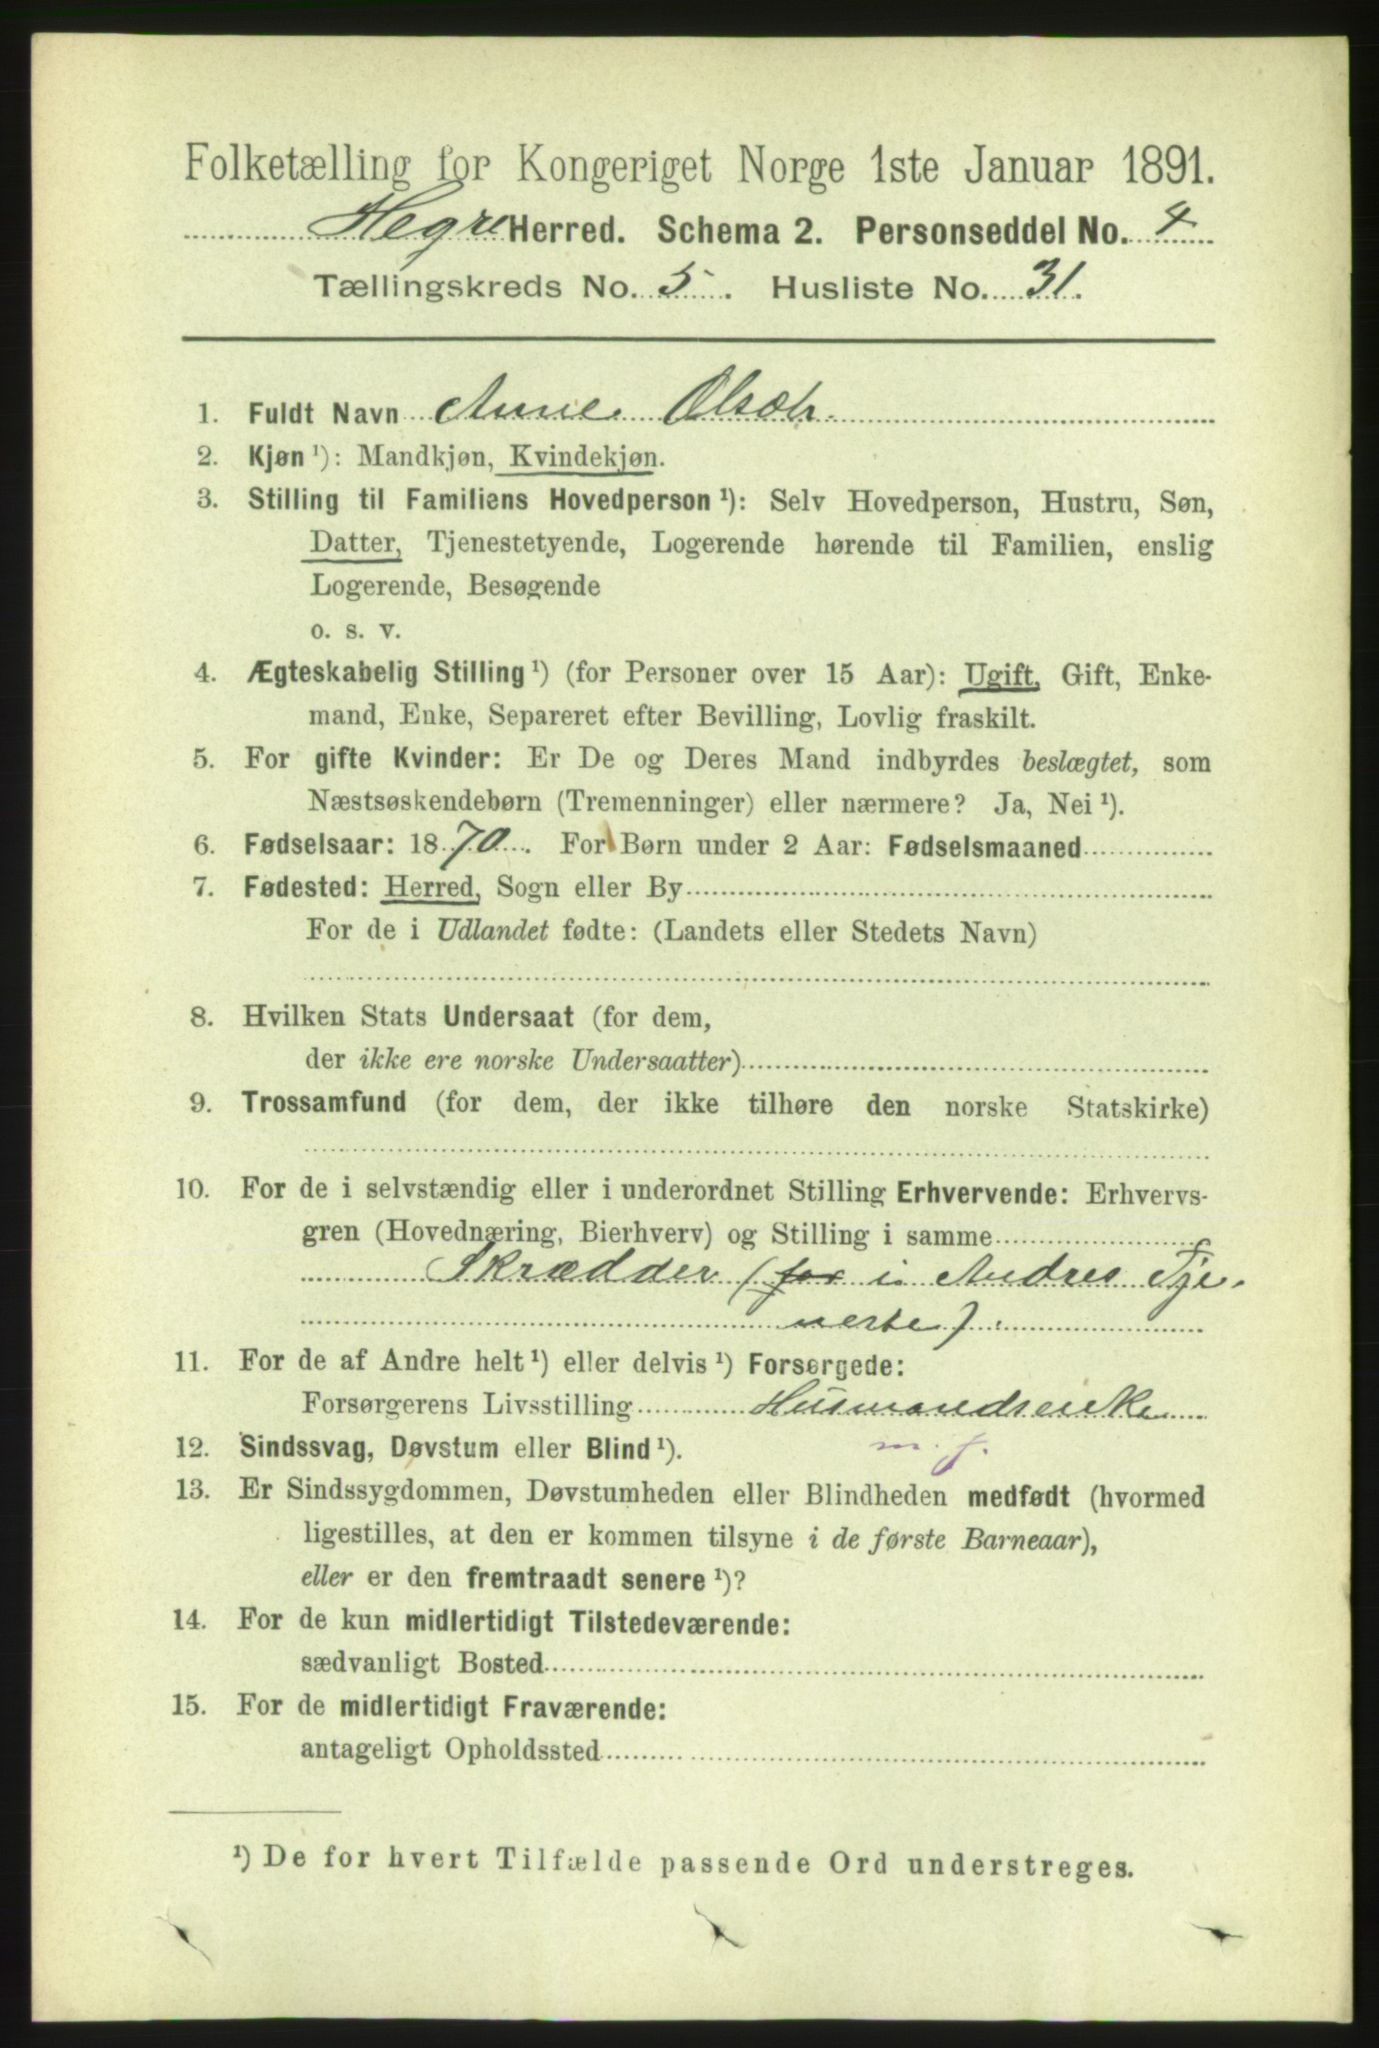 Folketælling for Kongeriget Norge 1ste Januar 1891.
Hegre Herred. Schema 2. Personseddel No. 4
Tællingskreds No. 5. Husliste No. 31.
1. Fuldt Navn Anne Olsdtr.
2. Kjøn ¹): Mandkjøn, Kvindekjøn.
3. Stilling til Familiens Hovedperson ¹): Selv Hovedperson, Hustru, Søn,
Datter, Tjenestetyende, Logerende hørende til Familien, enslig
Logerende, Besøgende
o. s. v.
4. Ægteskabelig Stilling ¹) (for Personer over 15 Aar): Ugift, Gift, Enke-
mand, Enke, Separeret efter Bevilling, Lovlig fraskilt.
5. For gifte Kvinder: Er De og Deres Mand indbyrdes beslægtet, som
Næstsøskendebørn (Tremenninger) eller nærmere? Ja, Nei ¹).
6. Fødselsaar: 1870. For Børn under 2 Aar: Fødselsmaaned
7. Fødested: Herred, Sogn eller By
For de i Udlandet fødte: (Landets eller Stedets Navn)
8. Hvilken Stats Undersaat (for dem,
der ikke ere norske Undersaatter)
9. Trossamfund (for dem, der ikke tilhøre den norske Statskirke)
10. For de i selvstændig eller i underordnet Stilling Erhvervende: Erhvervs-
gren (Hovednæring, Bierhverv) og Stilling i samme
Skrædder (for i Andres Tje-
neste).
11. For de af Andre helt ¹) eller delvis ¹) Forsørgede:
Forsørgerens Livsstilling Husmandsenke
12. Sindssvag, Døvstum eller Blind ¹). m. j.
13. Er Sindssygdommen, Døvstumheden eller Blindheden medfødt (hvormed
ligestilles, at den er kommen tilsyne i de første Barneaar),
eller er den fremtraadt senere ¹)?
14. For de kun midlertidigt Tilstedeværende:
sædvanligt Bosted
15. For de midlertidigt Fraværende:
antageligt Opholdssted
¹) De for hvert Tilfælde passende Ord understreges.